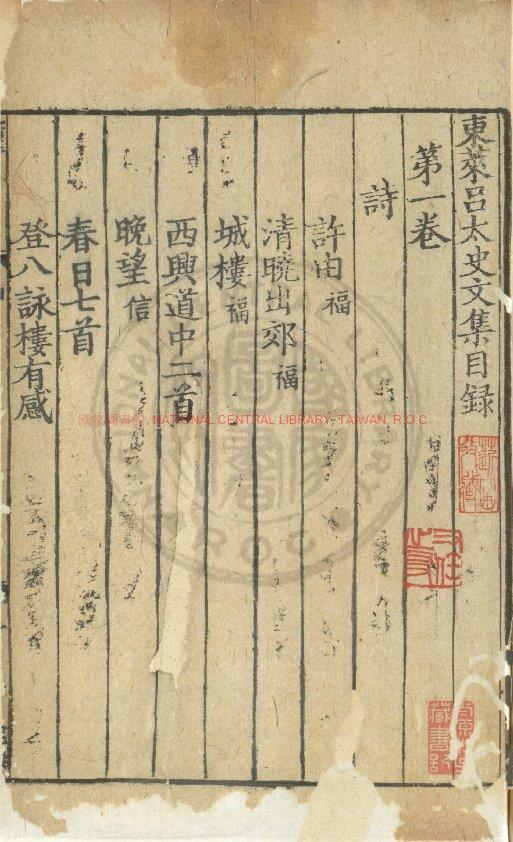 東萊吕太史文集目録
第一卷
詩
許由 福
清曉出郊 福
城樓 福
西興道中二首
晩望 信
春日七首
登八詠樓有感
NATIONAL CENTRAL LIBRARY, TAIWAN, R.O.C
藏書